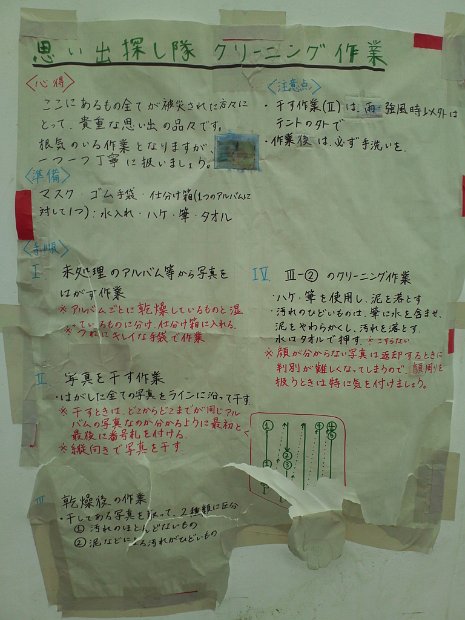 思い出探し隊 クリーニング作業
〈心得〉
ここにあるもの全てが被災された方々に
とって、貴重な思い出の品々です。
根気のいる作業となりますが、
一つ一つ丁寧に扱いましょう。
〈準備〉
マスク・ゴム手袋・仕分け箱(1つのアルバムに
対して1つ)・水入れ・ハケ・筆・タオル
〈手順〉
I 未処理のアルバム等から写真を
はがす作業
※アルバムごとに乾燥しているものと湿
っているものに分け、仕分け箱に入れる。
※つねにキレイな手袋で作業
II 写真を干す作業
・はがした全ての写真をラインに沿って干す
※干すときは、どこからどこまでが同じアル
バムの写真なのか分かるように最初と
最後に番号札を付ける。
※縦向きで写真を干す
III 乾燥後の作業
・干してある写真を取って、2種類に区分
①汚れのほとんどないもの
②泥などによる汚れがひどいもの
〈注意点〉
・干す作業(II)は、雨・強風時以外は
テントの外で
・作業後は、必ず手洗いを。
IV III-②のクリーニング作業
・ハケ・筆を使用し、泥を落とす
・汚れのひどいものは、筆に水を含ませ、
泥をやわらかくし、汚れを落とす。
水はタオルで押す ※こすらない
※顔が分からない写真は返却するときに
判別が難しくなってしまうので、顔周りを
扱うときは特に気を付けましょう。